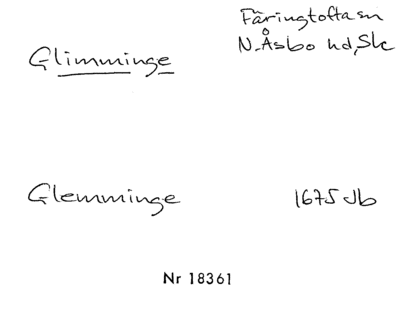 Färingtofta sn
Glimminge N. Åsbo hd, Sk
Glemminge 1675 Jb
Nr 18361